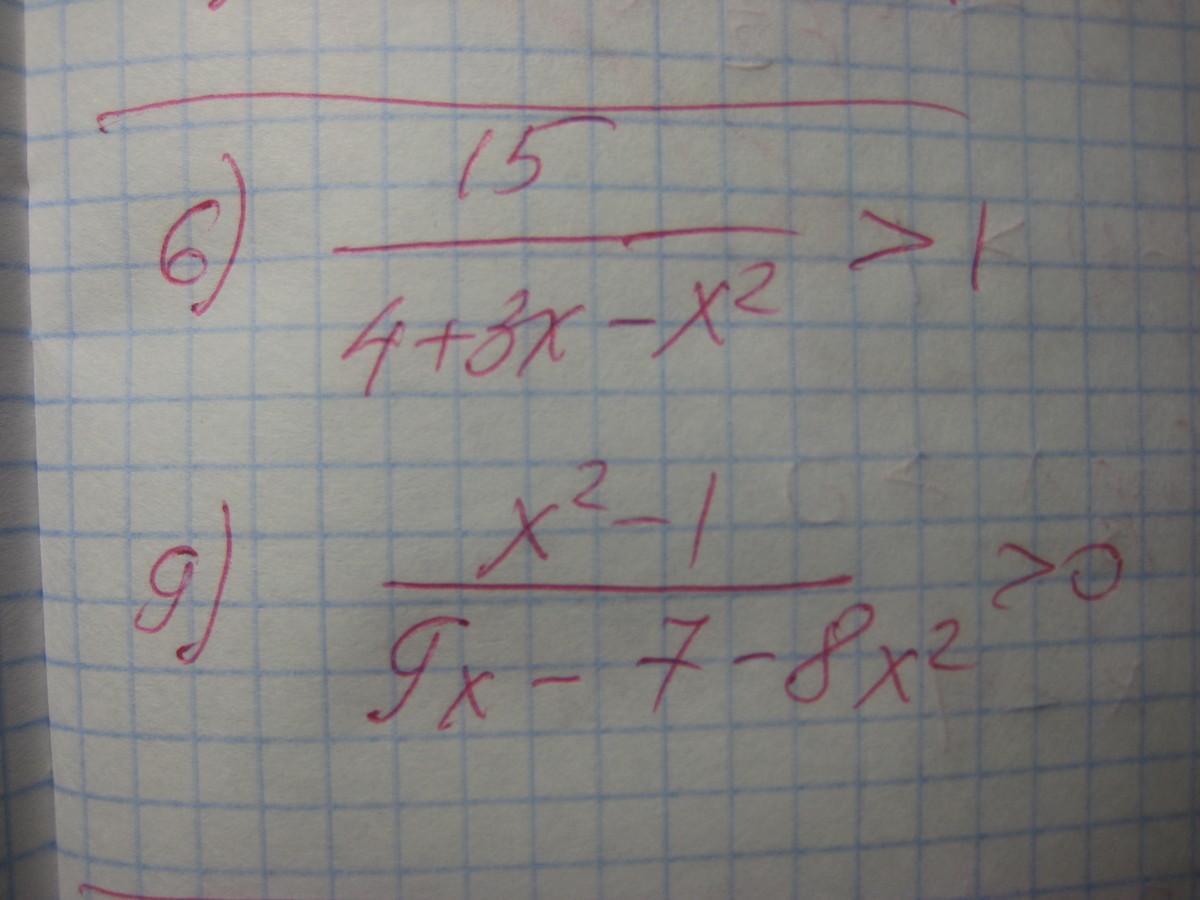 6) 15 / (4+3x-x²) > 1
g) (x²-1) / (9x-7-8x²) > 0